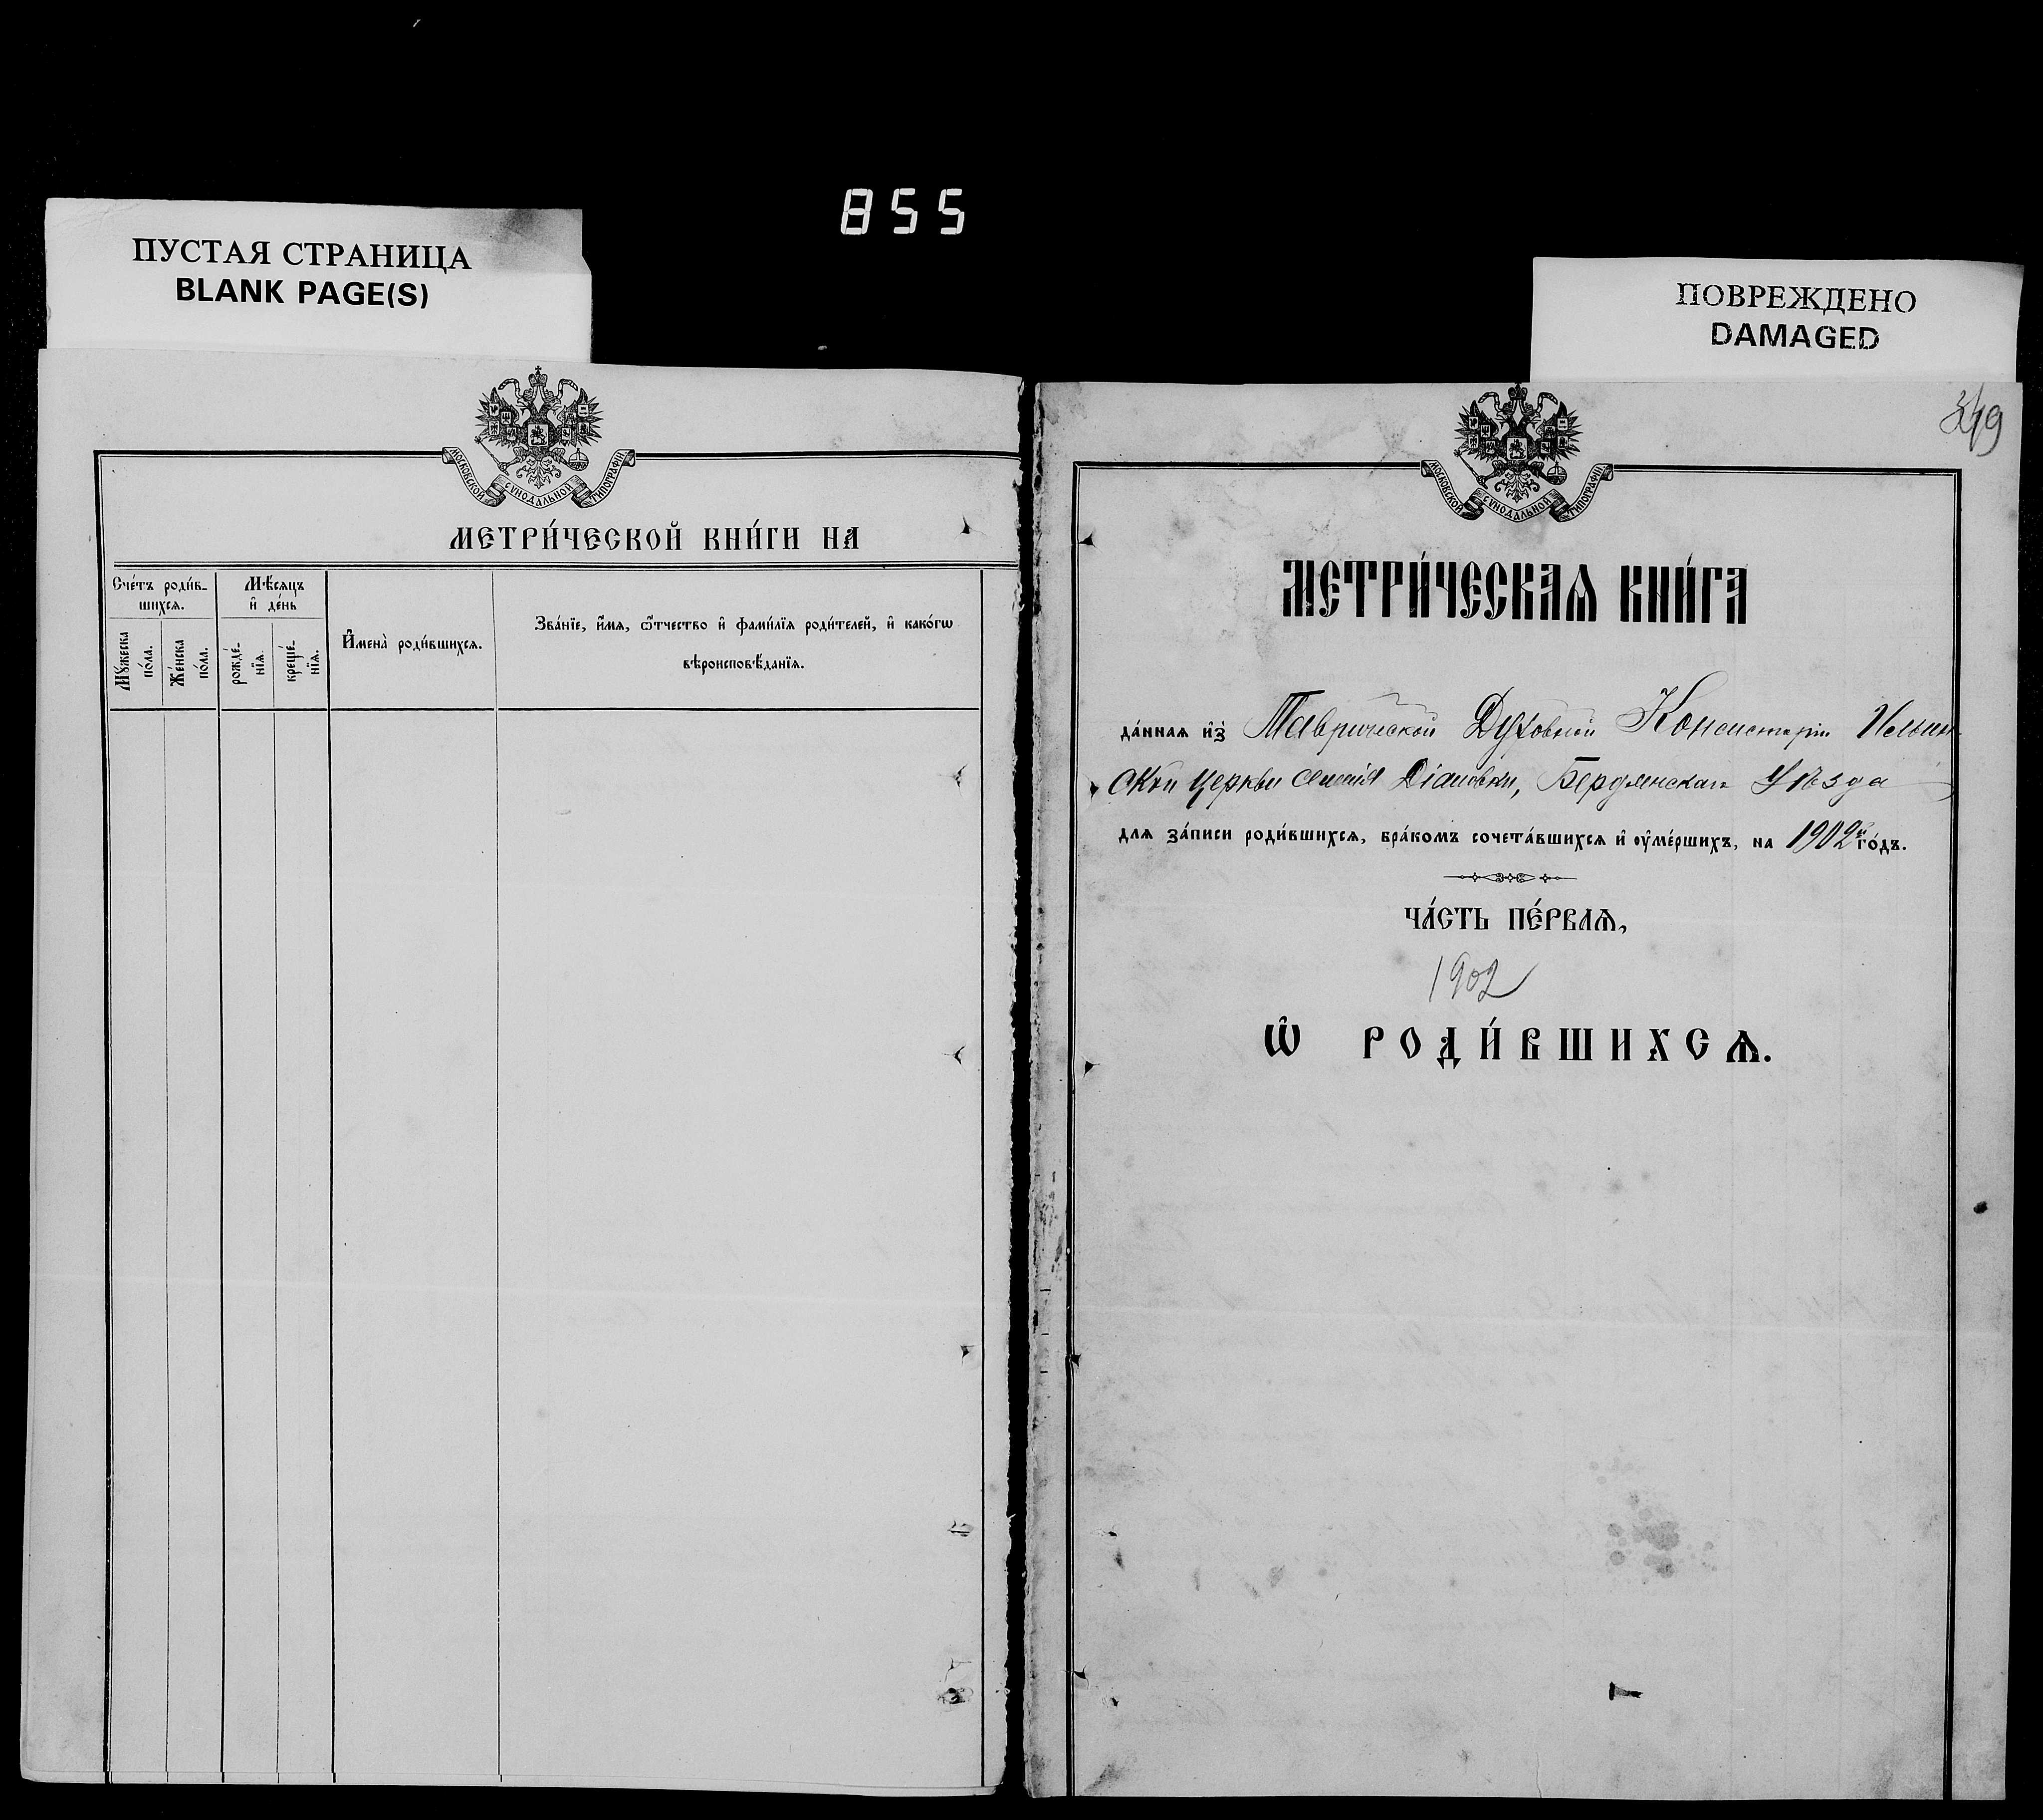 855
ПУСТАЯ СТРАНИЦА
BLANK PAGE(S)
МОСКОВСКОЙ СѴНОДАЛЬНОЙ ТИПОГРАФІИ
МЕТРИ́ЧЕСКОЙ КНИ́ГИ НА
Сче́тъ роди́в-
шихсѧ.
Мѣ́сѧцъ
и҆ де́нь
И҆мена̀ роди́вшихсѧ.
Зва́нїе, и҆́мѧ, ѻ҆́тчество и҆ фами́лїѧ роди́телей, и҆ како́гѡ
вѣроисповѣ́данїѧ.
Мꙋ́жеска
по́ла.
Же́нска
по́ла.
рожде́-
нїѧ.
креще́-
нїѧ.
ПОВРЕЖДЕНО
DAMAGED
349
МОСКОВСКОЙ СѴНОДАЛЬНОЙ ТИПОГРАФІИ
МЕТРИ́ЧЕСКАѦ КНИ́ГА
да́ннаѧ и҆з̾ Таврической Духовной Консисторіи Ильин
ской церкви селенія Діановки, Бердянскаго Уѣзда
длѧ за́писи роди́вшихсѧ, бра́комъ сочета́вшихсѧ и҆ ᲂу҆ме́ршихъ, на 1902й го́дъ.
ЧА́СТЬ ПЕ́РВАѦ,
1902
Ѡ҆ РОДИ́ВШИХСѦ.